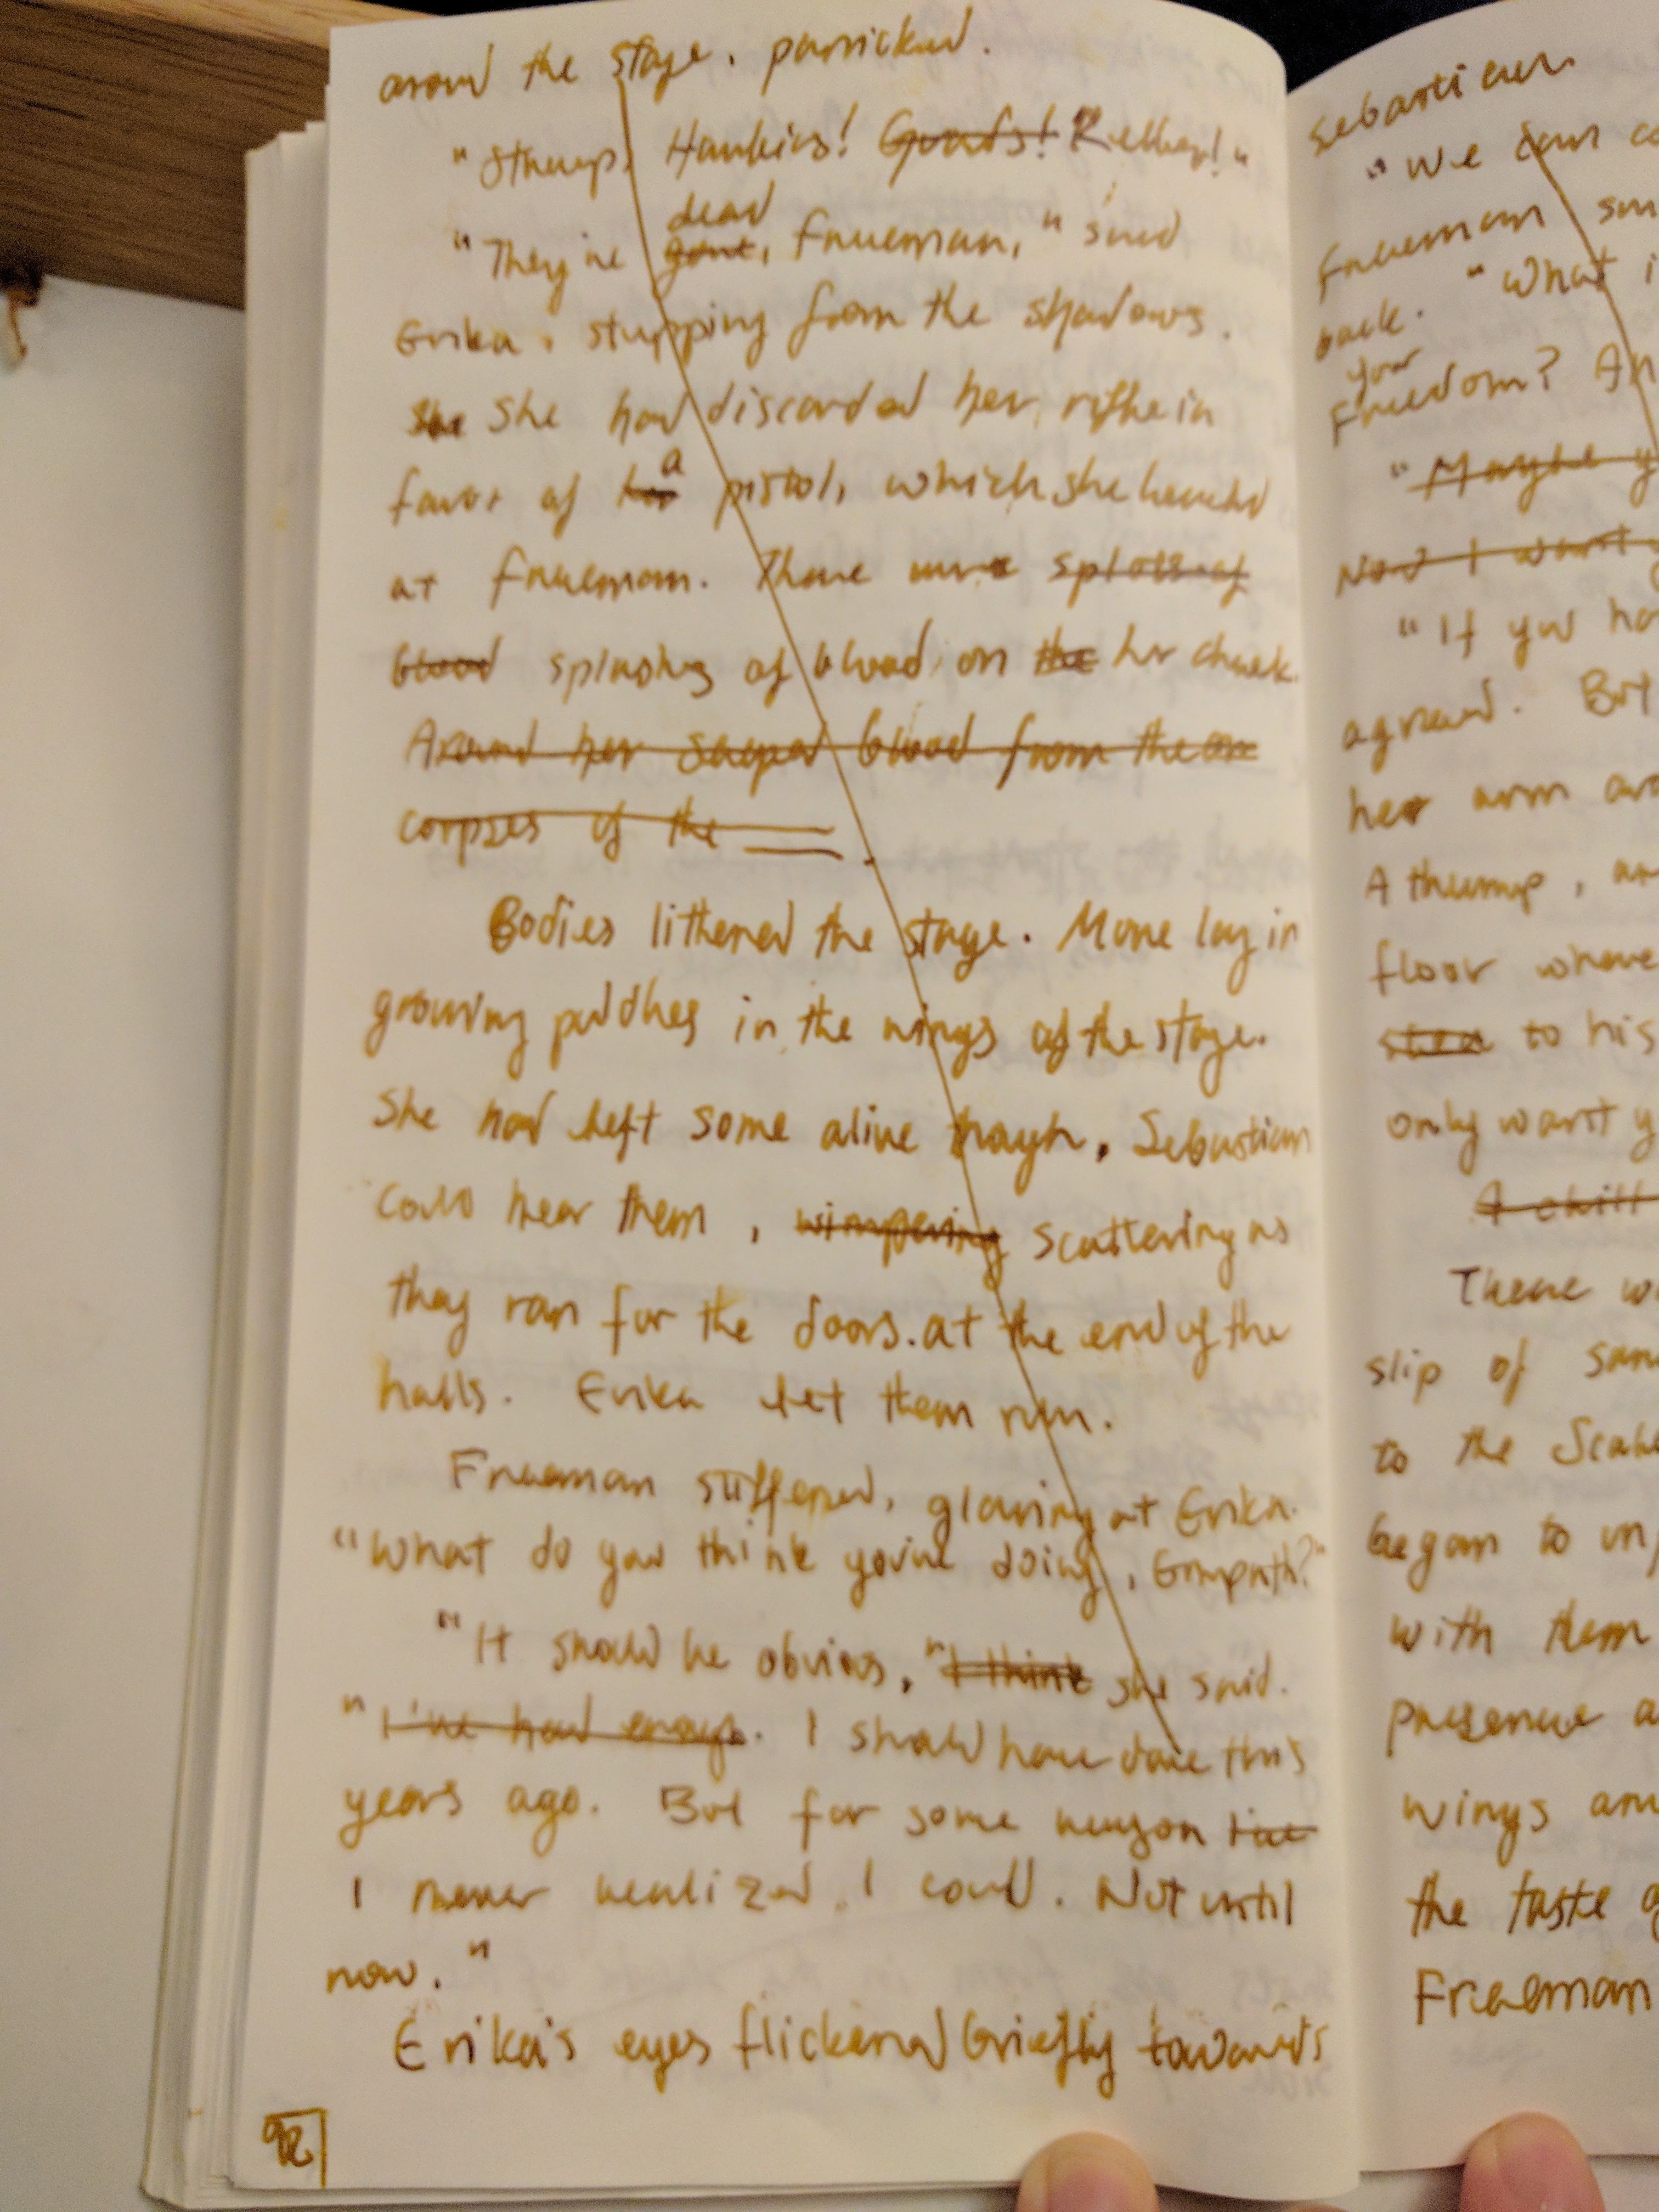 around the stage, panicked.
"Strump, Hawkins! Guards! Kelley!"
dead
"They're gone, Freeman," said
Erika, stepping from the shadows.
She She had discarded her rifle in
a
favor of her pistol, which she leveled
at Freeman. There were splotts of
blood splashes of blood on the her cheek.
Around her seeped blood from the on
corpses of the
Bodies littered the stage. More lay in
growing puddles in the wings of the stage.
She had left some alive though, Sebastian
could hear them, wimpering scattering as
they ran for the doors at the end of the
halls. Erika let them run.
Freeman stiffened, glaring at Erika.
"What do you think you're doing, Empath?"
"It should be obvious," "I think she said.
"I've had enough. I should have done this
years ago. But for some reason I've
I never realized I could. Not until
now."
Erika's eyes flickered briefly towards
92
Sebastian
"We can
Freeman
back. "What
your
Freedom? An
"Maybe
No? I want
"If you
agreed. But
her arm
A thump,
floor where
to his
only want
A chill
There
slip of
to the
began to
with them
presence
wings
the taste
Freeman